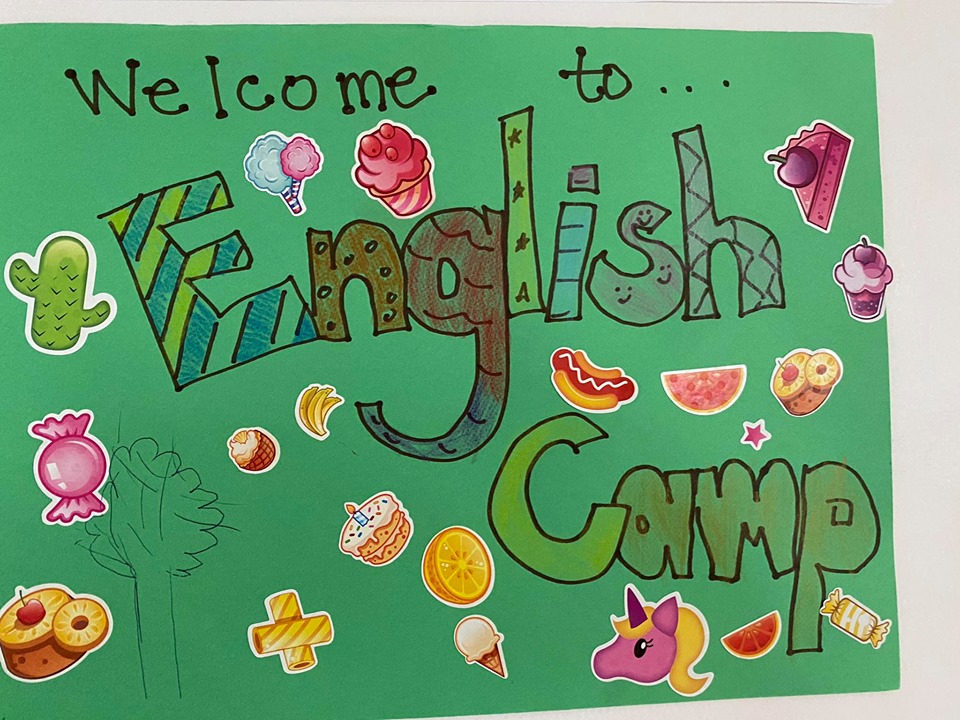 Welcome to...
English
Camp